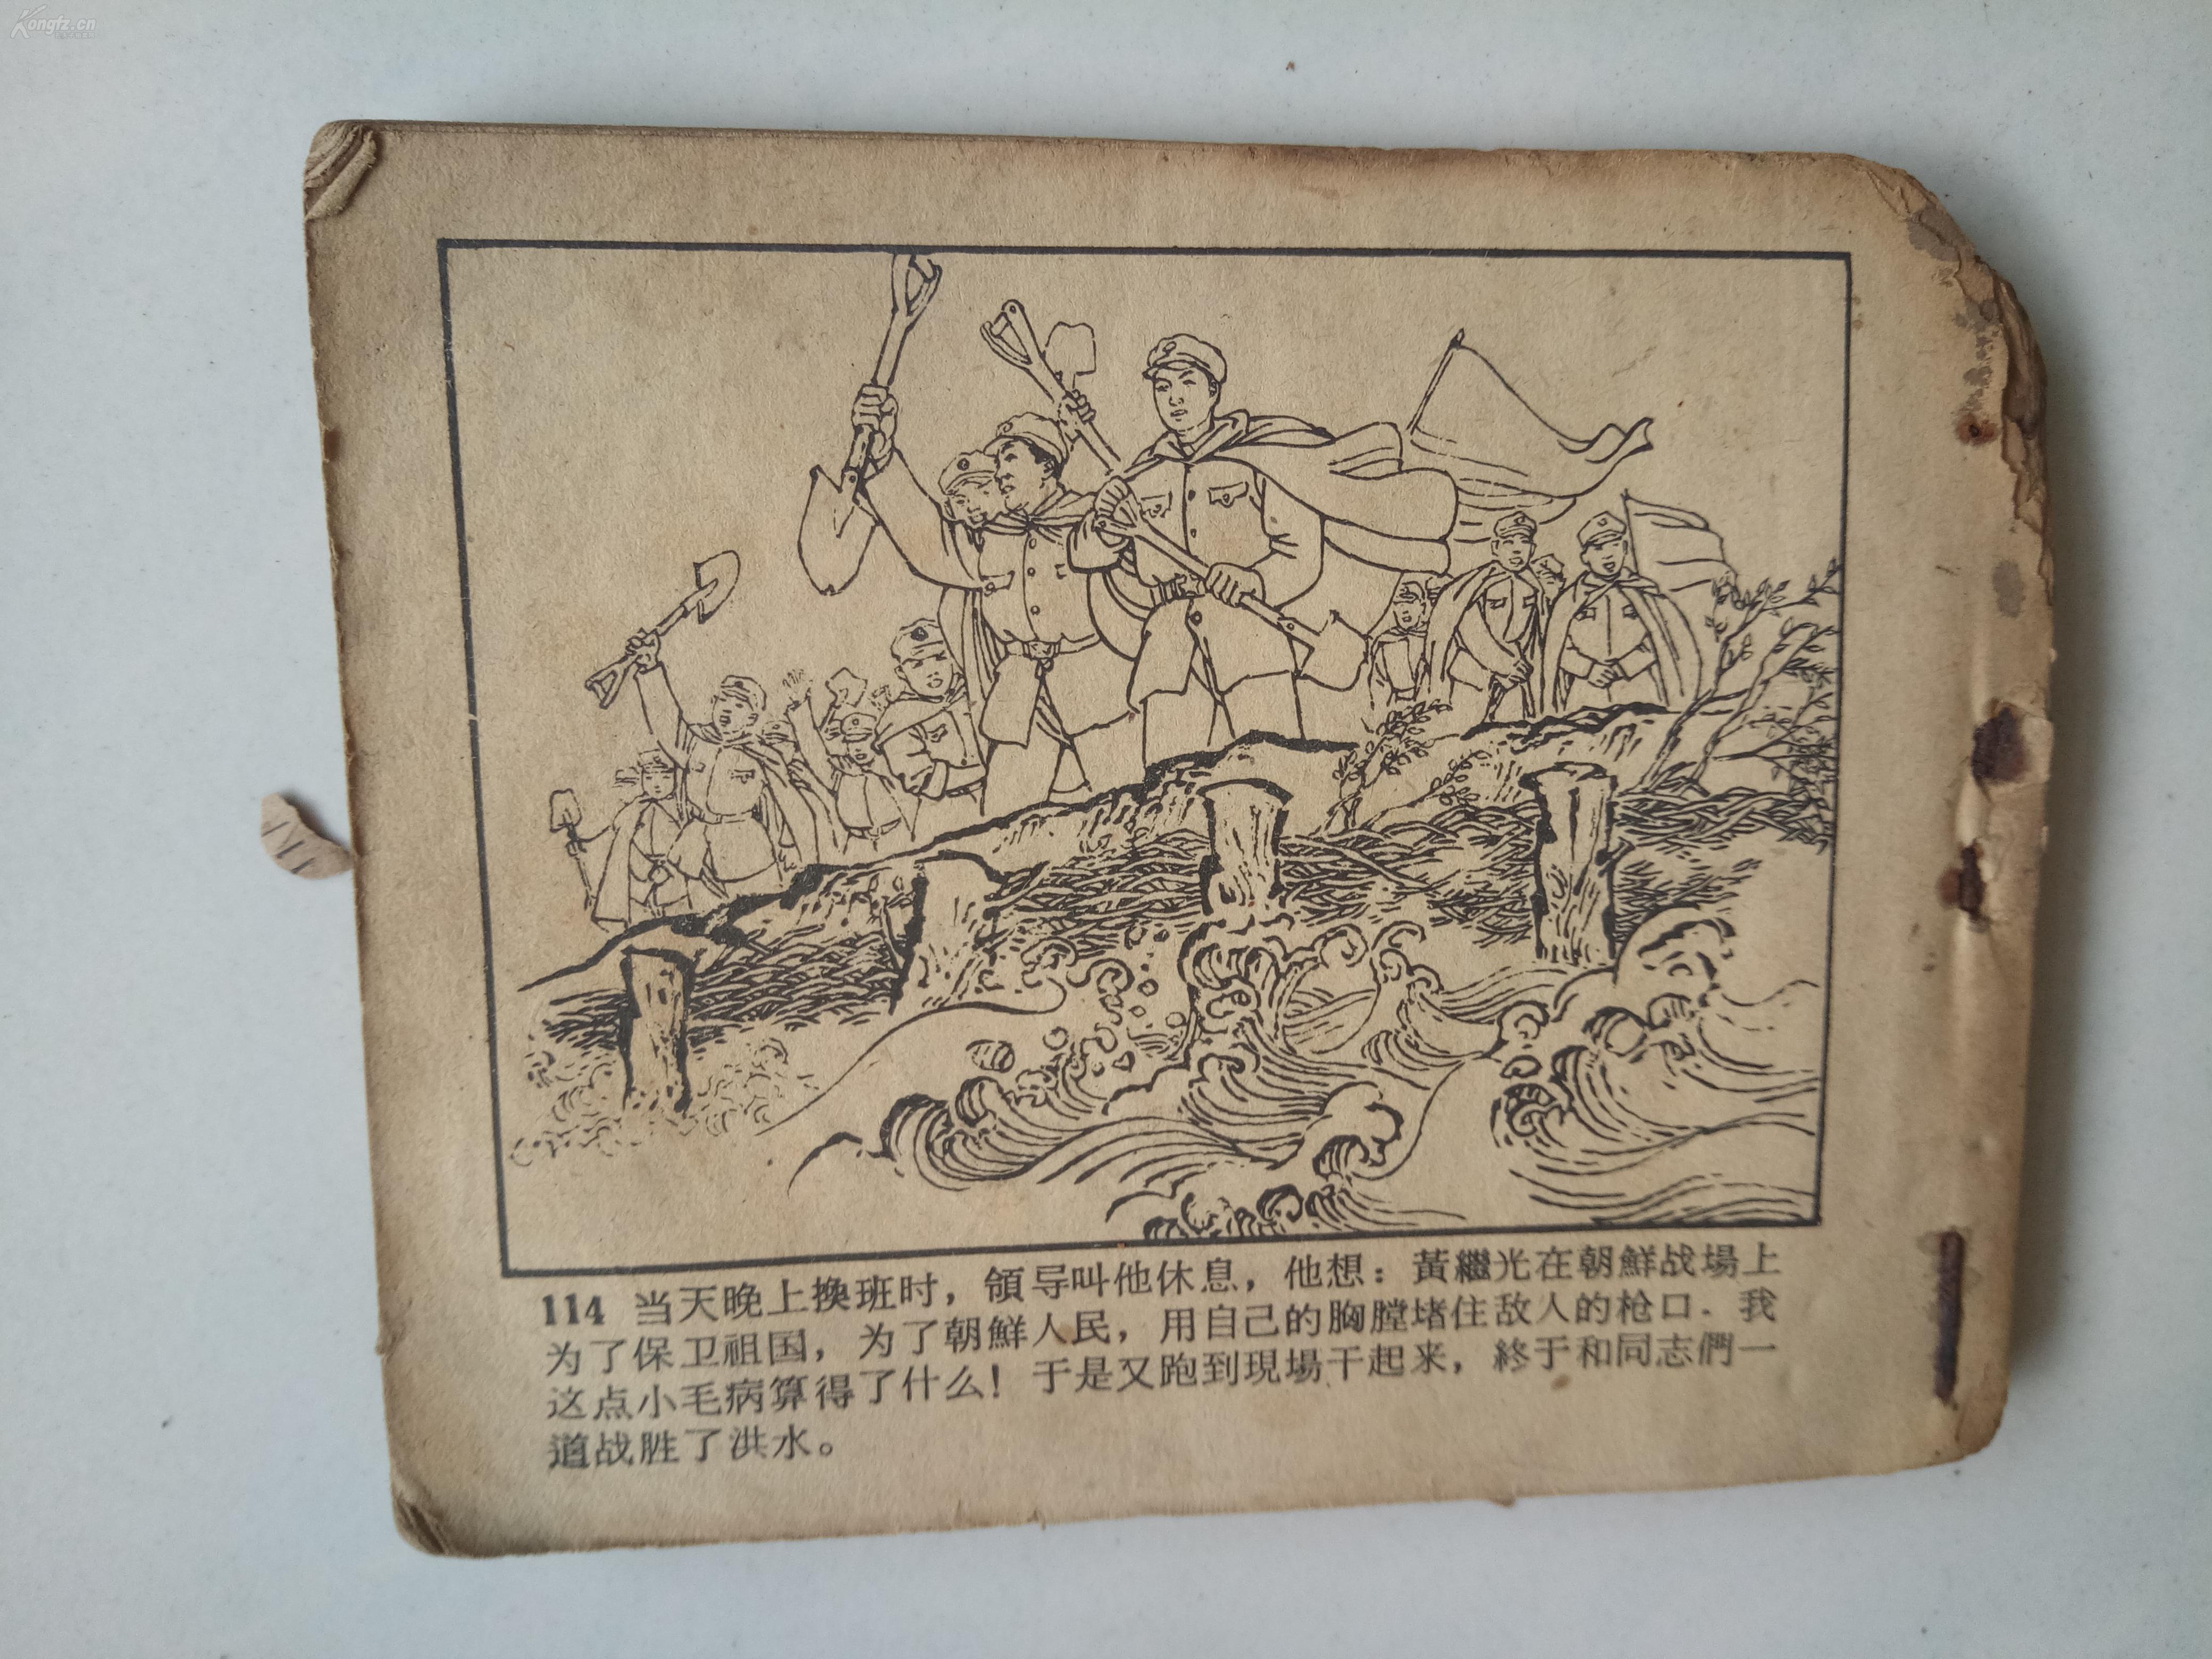 Kongfz.cn
114 当天晚上換班时，領导叫他休息，他想：黃繼光在朝鮮战場上
为了保卫祖国，为了朝鮮人民，用自己的胸膛堵住敌人的枪口．我
这点小毛病算得了什么！于是又跑到現場干起来，終于和同志們一
道战胜了洪水。